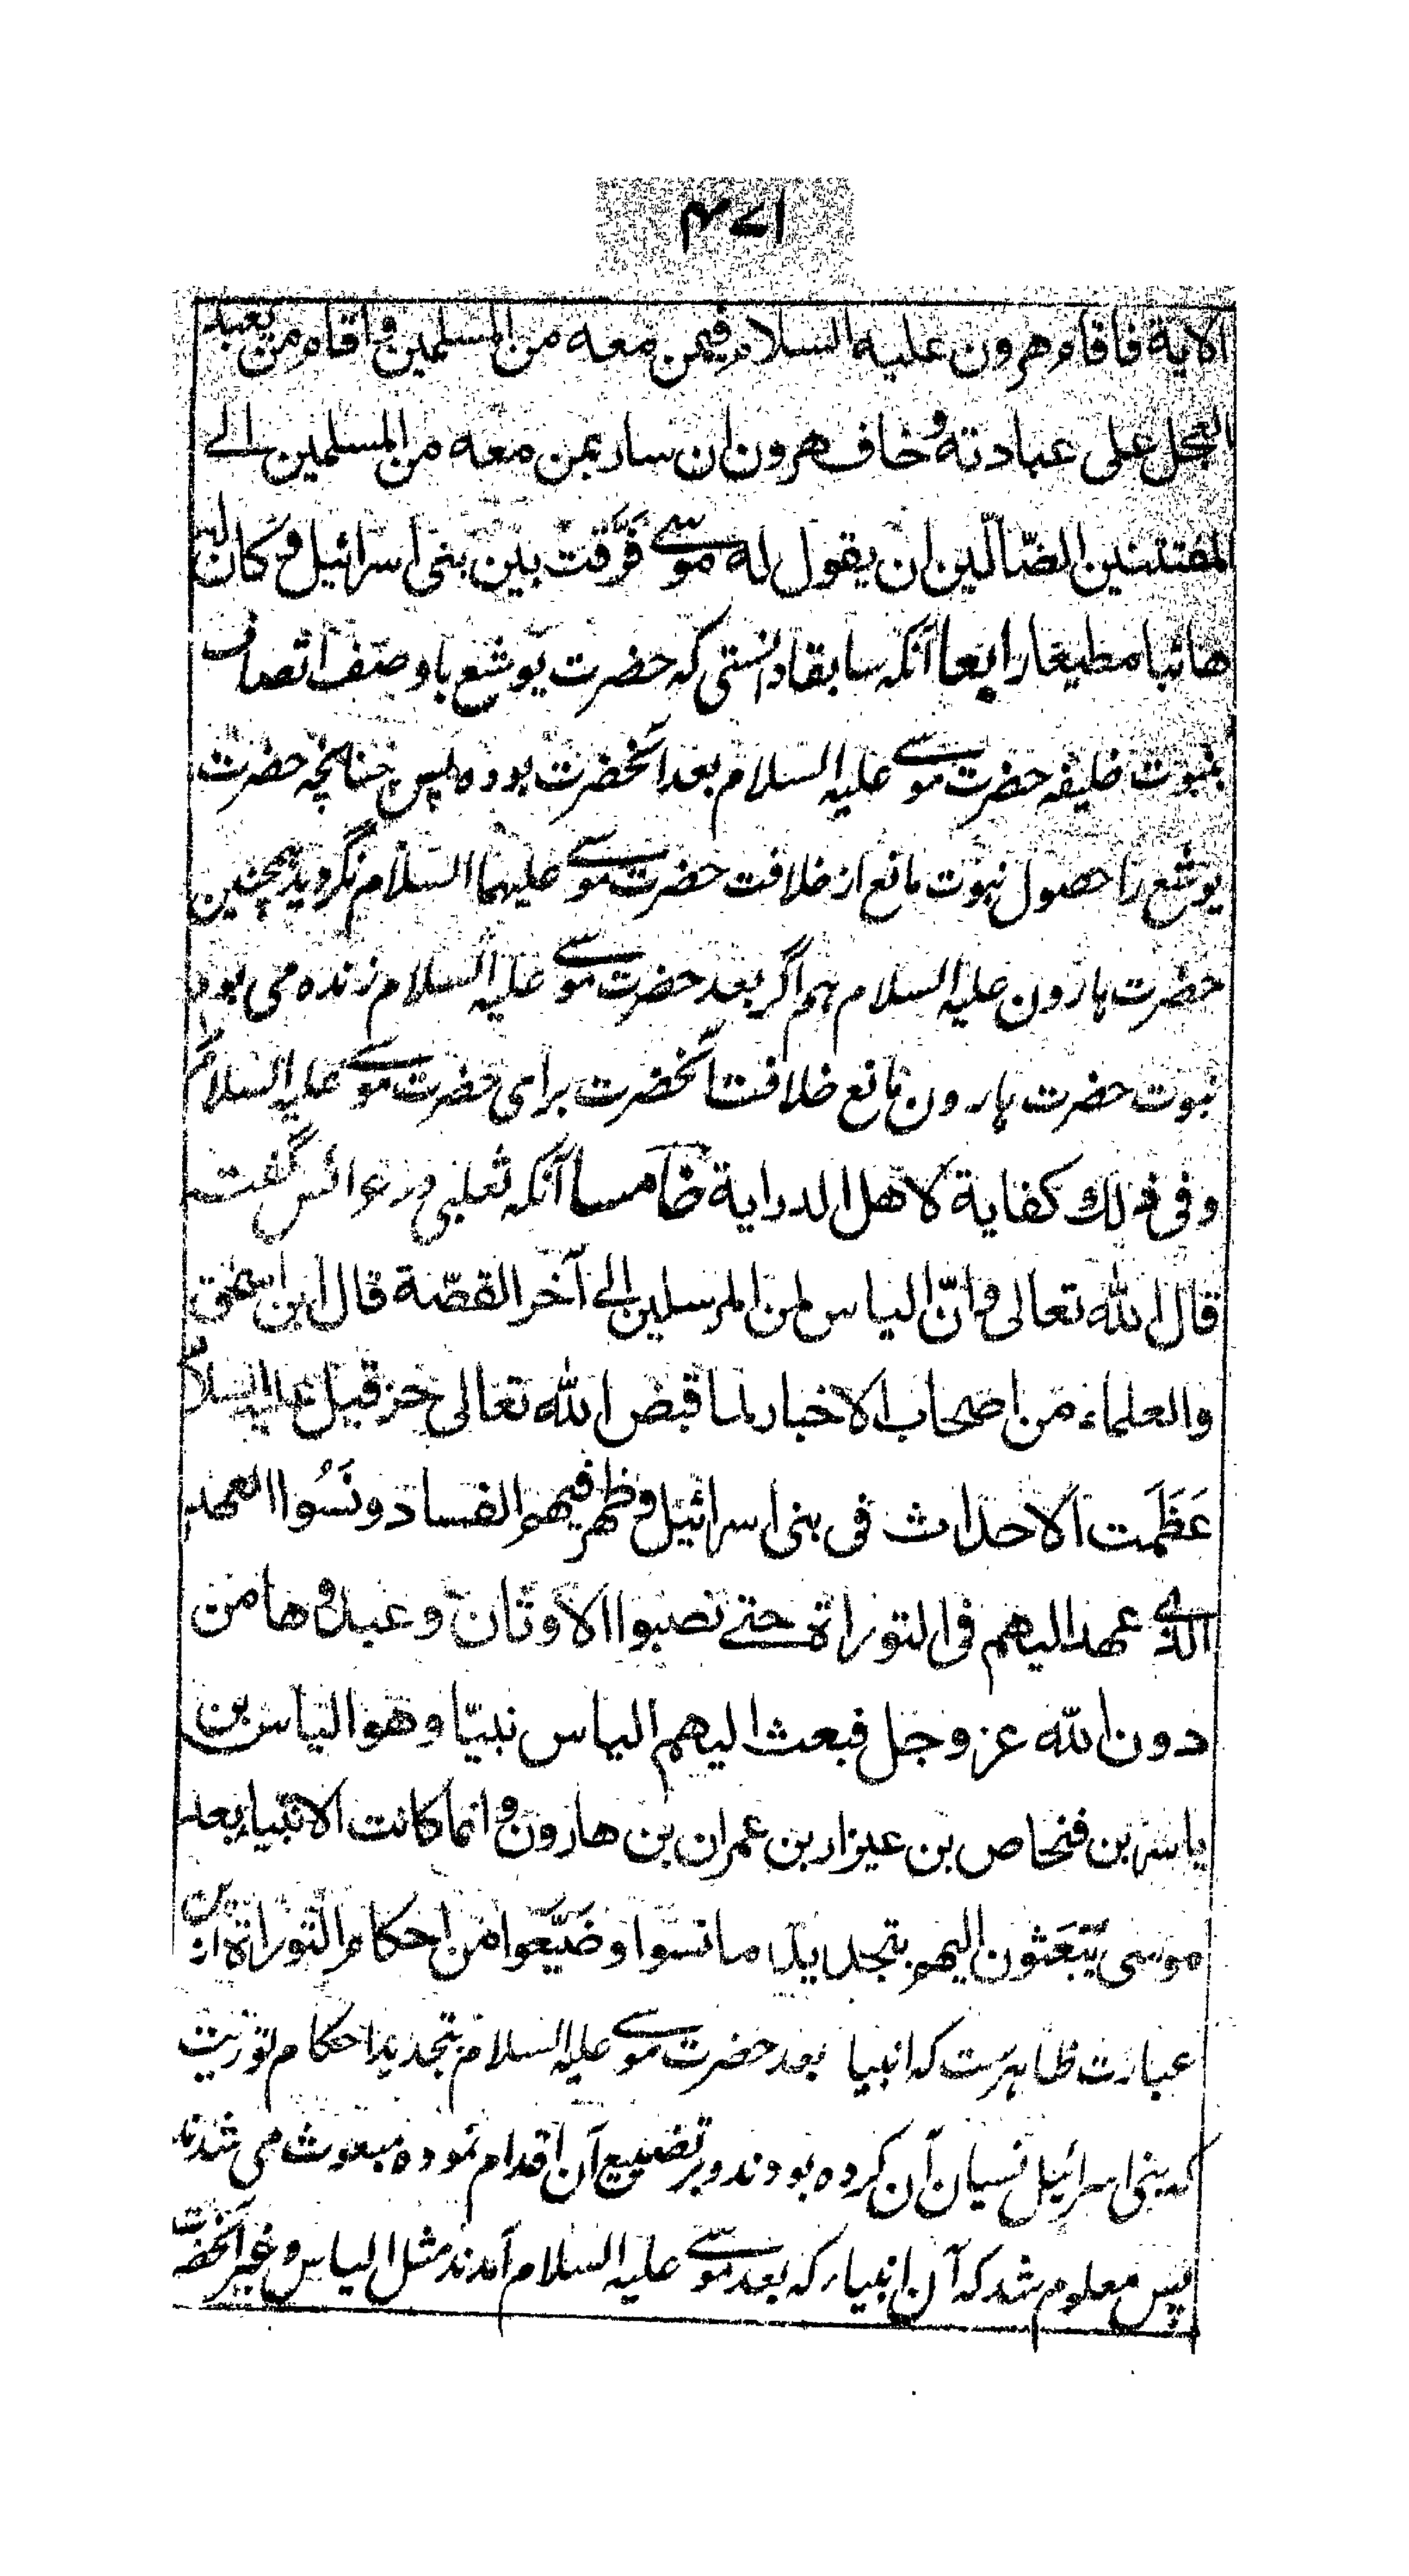 ۴۷۱
الآية فاقام هرون عليه السلام فيمن معه من المسلمين واقام من يعبد
العجل على عبادته وخاف هرون ان سار بمن معه من المسلمين الى
المفتتنين الضّالّين ان يقول له موسى فرّقت بين بنى اسرائيل وكان له
هائبا مطيعا رابعا آنکه سابقا دانستی که حضرت یوشع با وصف اتصاف
بنبوت خلیفه حضرت موسے علیه السلام بعد آنحضرت بوده پس چنانچه حضرت
یوشع را حصول نبوت مانع از خلافت حضرت موسے علیهما السلام نگردید همچنین
حضرت هارون علیه السلام هم اگر بعد حضرت موسے علیه السلام زنده می بود
نبوت حضرت هارون مانع خلافت آنحضرت برای حضرت موسے علیه السلام
وفى ذلك كفاية لاهل الدراية خامسا آنکه ثعلبی در عرائس گفت
قال الله تعالى وانّ الياس لمن المرسلين الى آخر القصّة قال ابن اسحق
والعلماء من اصحاب الاخبار لما قبض الله تعالى حزقيل عليه السلام
عَظُمَت الاحداث فى بنى اسرائيل وظهر فيهم الفساد ونَسُوا العهد
الذى عهد اليهم فى التوراة حتى نصبوا الاوثان وعبدوها من
دون الله عز وجل فبعث اليهم الياس نبيّا وهو الياس بن
ياسر بن فنحاص بن عيزار بن عمران بن هارون وانما كانت الانبياء بعد
موسى يُبعَثون اليهم بتجديد ما نسوا وضَيَّعوا من احكام التوراة ازین
عبارت ظاهرست که انبیا بعد حضرت موسے علیه السلام بتجدید احکام توریت
که بنی اسرائیل نسیان آن کرده بودند و بر تضییع آن اقدام نموده مبعوث می شدند
پس معلوم شد که آن انبیاء که بعد موسے علیه السلام آمدند مثل الیاس و غیر آنحضرت